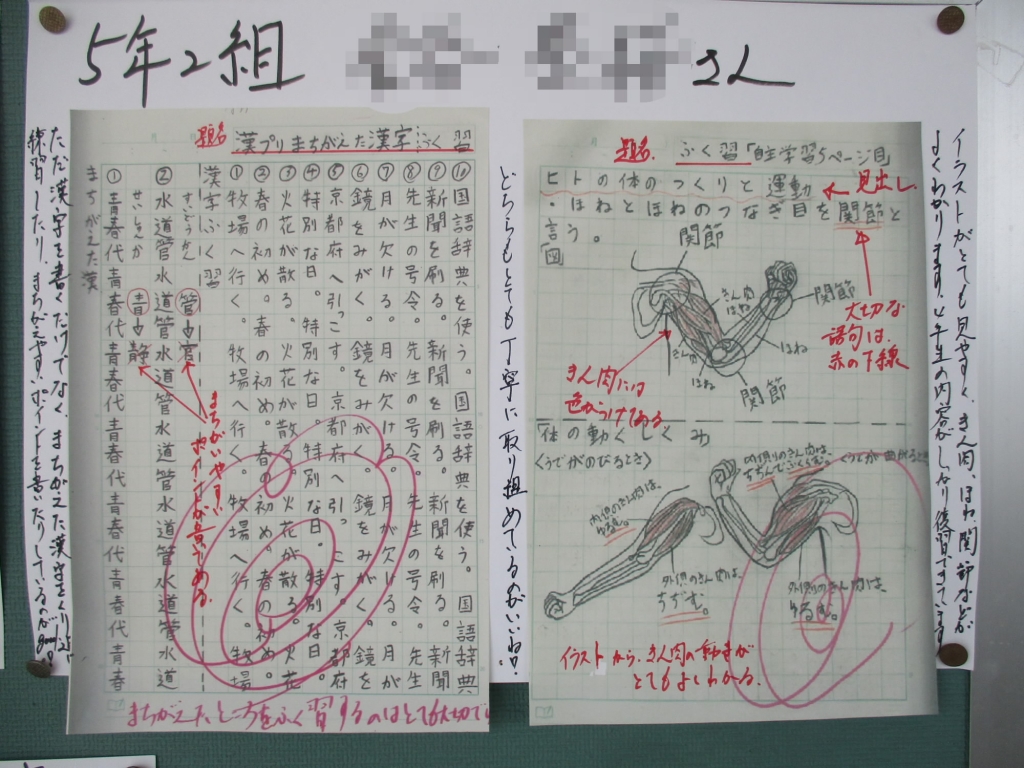 5年2組
さん
題名 漢プリまちがえた漢字ふく習
⑩国語辞典を使う。国語辞典を使う。国語辞典
⑨新聞を刷る。新聞を刷る。新聞を刷る。新聞
⑧先生の号令。先生の号令。先生の号令。先生
⑦月が欠ける。月が欠ける。月が欠ける。月が
⑥鏡をみがく。鏡をみがく。鏡をみがく。鏡を
⑤京都府へ引っこす。京都府へ引っこす。京都府
④特別な日。特別な日。特別な日。特別な日。
③火花が散る。火花が散る。火花が散る。火花
②春の初め。春の初め。春の初め。春の初め。
①牧場へ行く。牧場へ行く。牧場へ行く。牧場
漢字ふく習
②水道管水道管水道管水道管水道管水道管水道
①青春代青春代青春代青春代青春代青春
まちがえた漢
まちがいやすい
ポイントが書いてある。
まちがえたところをふく習するのはとても大切で
ただ漢字を書くだけでなく、まちがえた漢字をくり返し
練習したり、まちがえやすいポイントを書いたりしているのがgood!
どちらもとても丁寧に取り組めているのがいいね!
題名 ふく習「自主学習5ページ目
ヒトの体のつくりと運動
見出し
・ほねとほねのつなぎ目を関節と
言う。
図
関節
きん肉
関節
ほね
きん肉
ほね
関節
大切な
語句は、
赤の下線
きん肉には
色がつけてある
「体の動くしくみ
〈うでがのびるとき〉
内側のきん肉は、
ゆるむ。
外側のきん肉は、
ちぢむ。
〈うでが曲がるとき
内側のきん肉は、
ちぢんでふくらむ。
外側のきん肉は、
ゆるむ。
イラストから、きん肉の動きが
とてもよくわかる。
イラストがとても見やすく、きん肉、ほね、関節などが
よくわかります。4年生の内容がしっかり復習できています